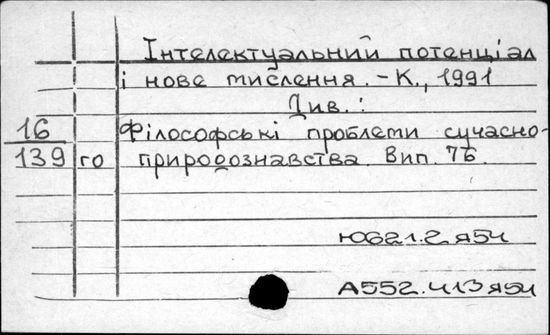 Інтелектуальний потенціал
і нове мислення. – К., 1991
Див.:
16 Філософські проблеми сучасно-
139 го природознавства. Вип. 76.
Ю621.2я54
А552.413я54